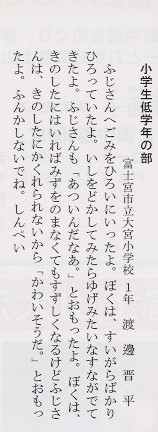 小学生低学年の部
富士宮市立大宮小学校 1年 渡邊晋平
ふじさんへごみをひろいにいったよ。ぼくは、すいがらばかり
ひろっていたよ。いしをどかしてみたらゆげみたいなすながでて
きたよ。ふじさんも「あついんだなあ。」とおもったよ。ぼくは、
きのしたにはいればみずをのまなくてもすずしくなるけどふじさ
んは、きのしたにかくれられないから「かわいそうだ。」とおもっ
たよ。ふんかしないでね。しんぺい